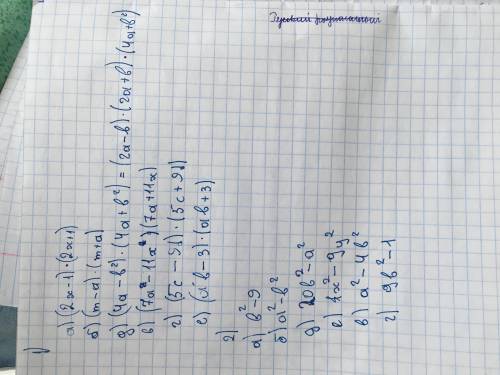 1)
а) (2x-1)·(2x+1)
б) (m-a)·(m+a)
д) (4a-b²)·(4a+b²) = (2a-b)·(2a+b)·(4a+b²)
в) (7a-11x)(7a+11x)
г) (5c-9b)·(5c+9b)
е) (ab-3)·(ab+3)
2)
а) b²-9
б) a²-b²
д) 20b²-a²
е) 4x²-9y²
в) a²-4b²
г) 9b²-1